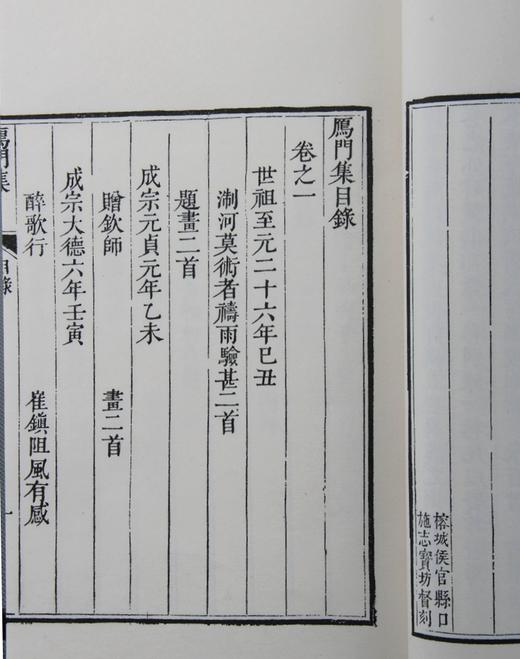 榕城侯官縣口
施志寶坊督刻
鴈門集目錄
卷之一
世祖至元二十六年己丑
淛河莫術者禱雨驗甚二首
題畫二首
成宗元貞元年乙未
贈欽師 畫二首
成宗大德六年壬寅
醉歌行 崔鎮阻風有感
鴈門集 目錄 一